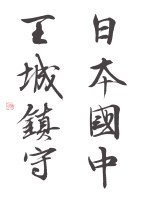 日本國中
王城鎮守